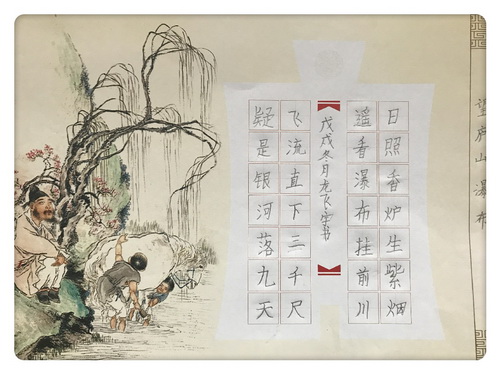 望庐山瀑布
日照香炉生紫烟
遥看瀑布挂前川
戊戌冬月龙飞书
飞流直下三千尺
疑是银河落九天